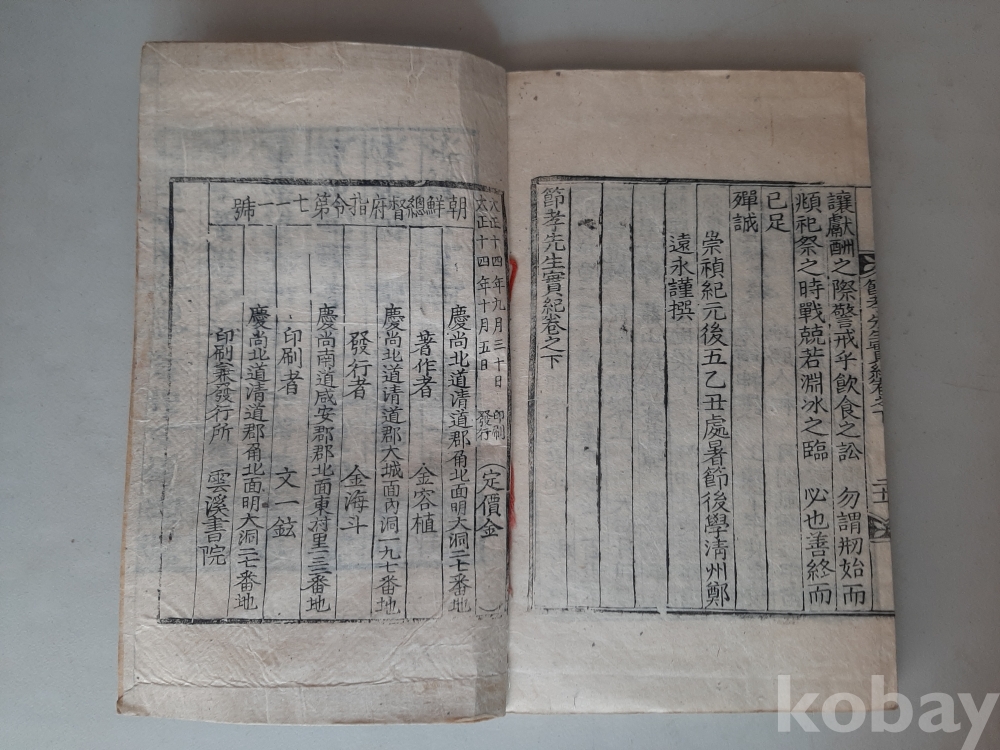 讓獻酬之際警戒乎飮食之訟　勿謂刱始而
頫祀祭之時戰兢若淵冰之臨　必也善終而
已足
殫誠
崇禎紀元後五乙丑處暑節後學淸州鄭
遠永謹撰
節孝先生實紀卷之下
大正十四年九月三十日印刷
大正十四年十月五日發行
（定價金　）
朝鮮總督府指令第七一一號
慶尙北道淸道郡角北面明大洞二七番地
著作者　金容植
慶尙北道淸道郡大城面內洞一九七番地
發行者　金海斗
慶尙南道咸安郡郡北面東村里一三番地
印刷者　文一鉉
慶尙北道淸道郡角北面明大洞二七番地
印刷兼發行所　雲溪書院
kobay